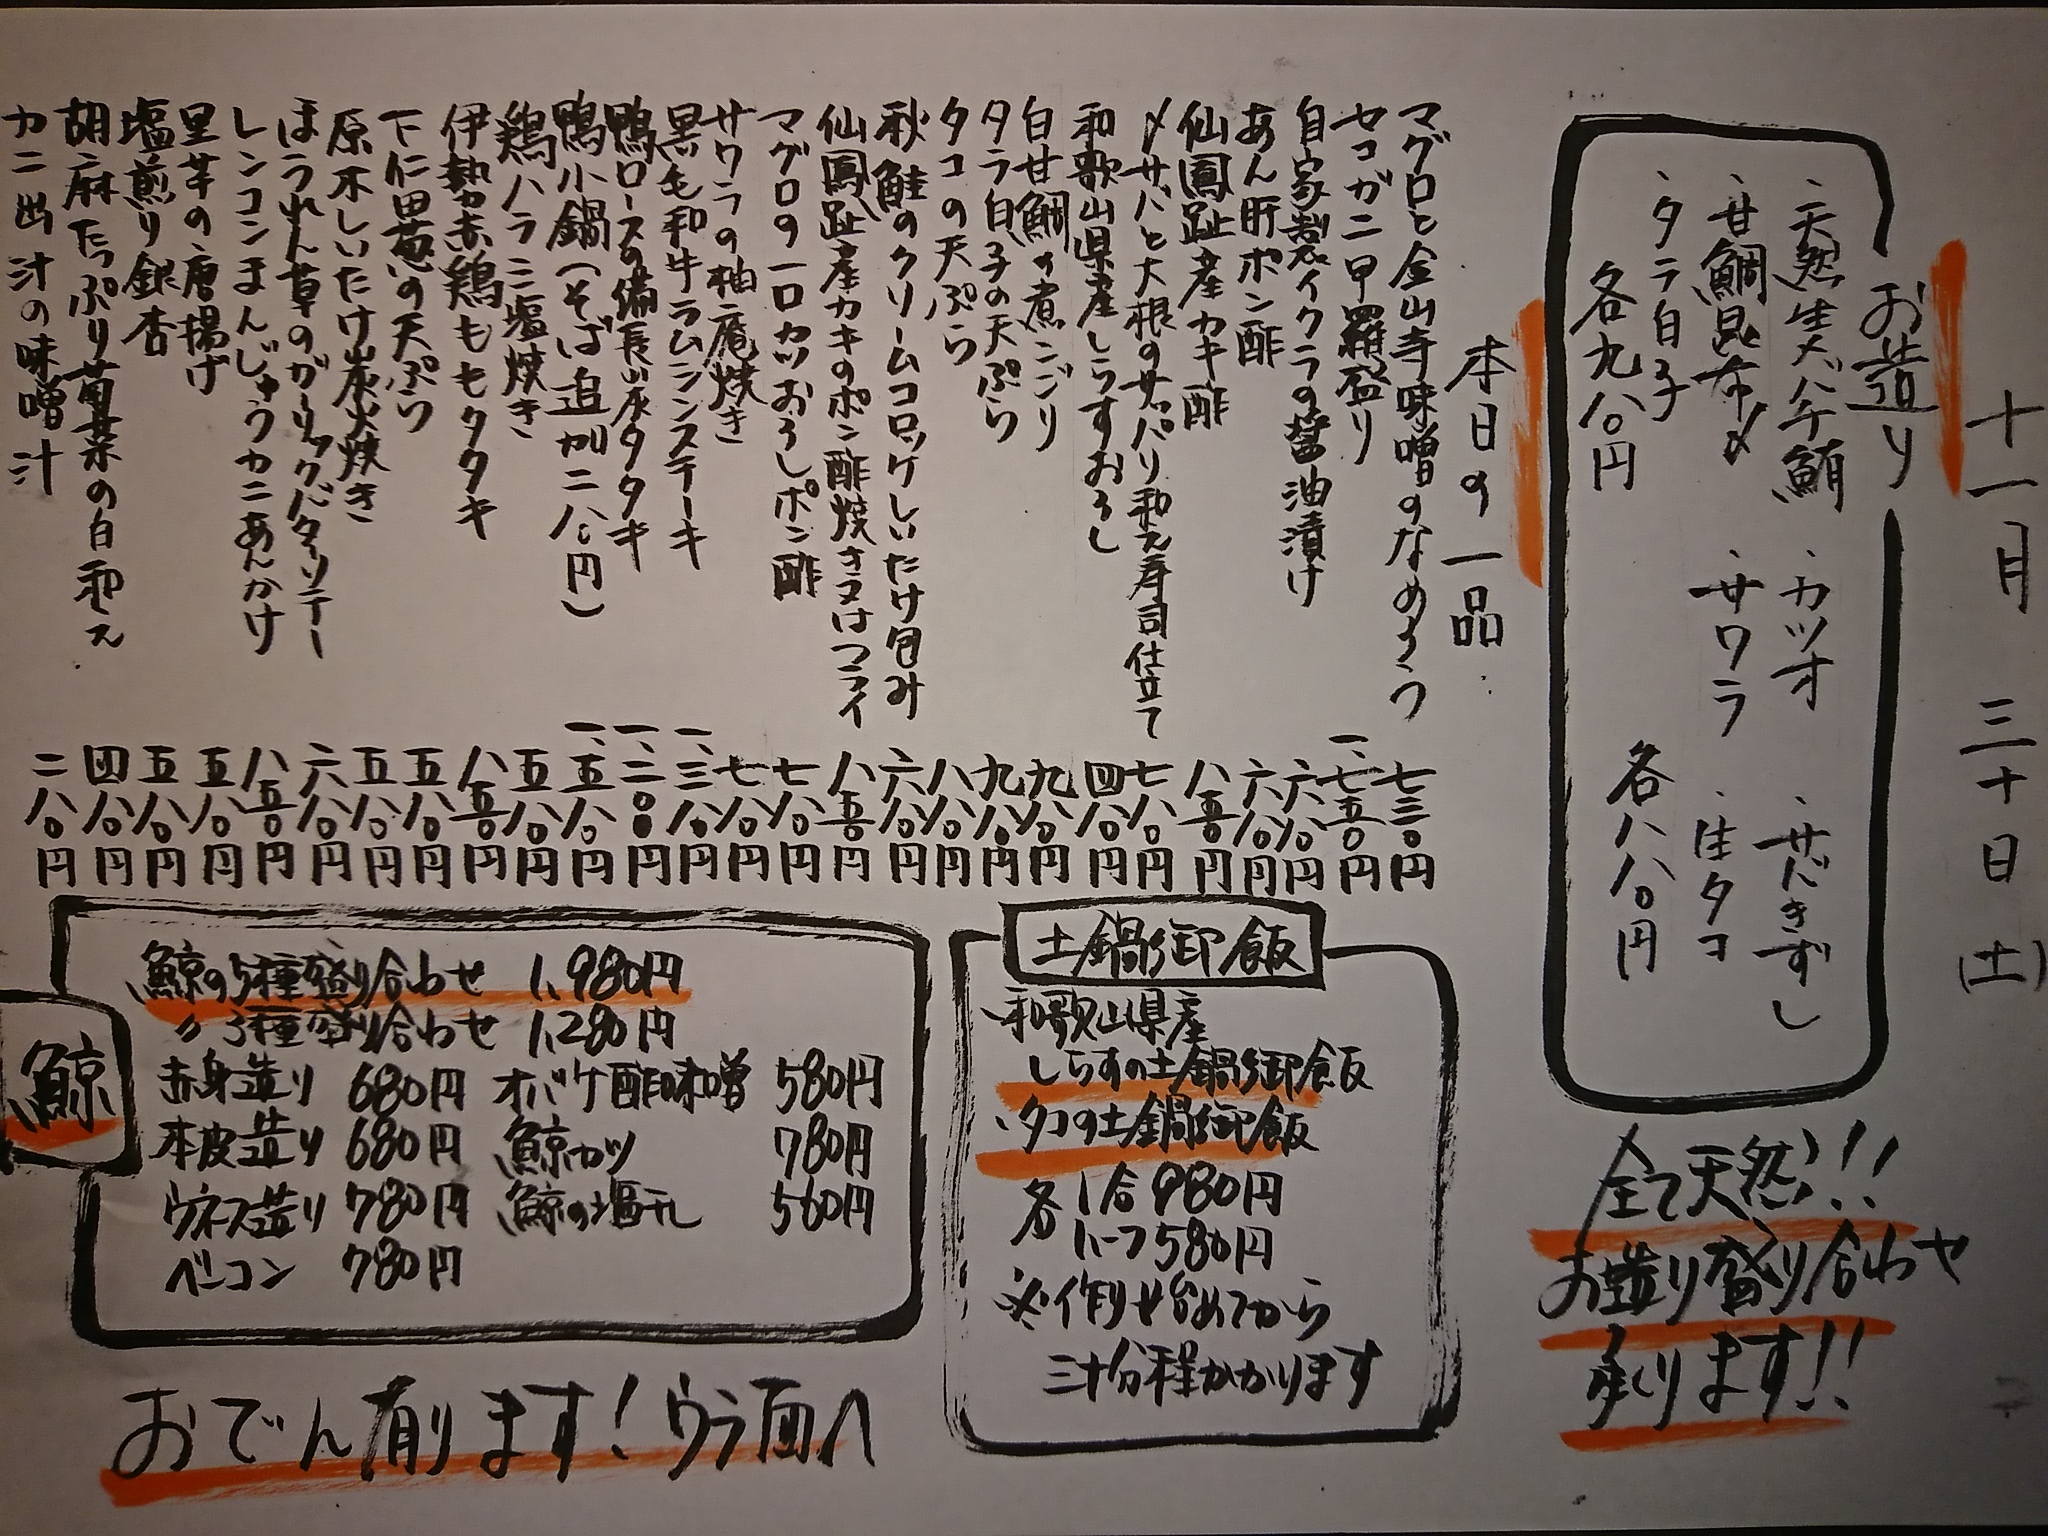 十一月三十日(土)
お造り
・天然生バチ鮪 ・カツオ ・サバきずし
・甘鯛昆布〆 ・サワラ ・生タコ
・タラ白子
各九八〇円 各八八〇円
全て天然!!
お造り盛り合わせ
承ります!!
本日の一品
マグロと金山寺味噌のなめろう 七三〇円
セコガニ甲羅盛り 一、七五〇円
自家製イクラの醤油漬け 六八〇円
あん肝ポン酢 六八〇円
仙鳳趾産カキ酢 八五〇円
〆サバと大根のサッパリ和え寿司仕立て 七八〇円
和歌山県産しらすおろし 四八〇円
白甘鯛の煮こごり 九八〇円
タラ白子の天ぷら 九八〇円
タコの天ぷら 八八〇円
秋鮭のクリームコロッケしいたけ包み 六八〇円
仙鳳趾産カキのポン酢焼き又はフライ 八五〇円
マグロの一口カツおろしポン酢 七八〇円
サワラの柚庵焼き 七八〇円
黒毛和牛ラムシンステーキ 一、三八〇円
鴨ロースの備長炭タタキ 一、二〇〇円
鴨小鍋(そば追加二八〇円) 一、五八〇円
鶏ハラミ塩焼き 五八〇円
伊勢赤鶏ももタタキ 八五〇円
下仁田葱の天ぷら 五八〇円
原木しいたけ炭火焼き 五八〇円
ほうれん草のガーリックバターソテー 六八〇円
レンコンまんじゅうカニあんかけ 八五〇円
里芋の唐揚げ 五八〇円
塩煎り銀杏 五八〇円
胡麻たっぷり菊菜の白和え 四八〇円
カニ出汁の味噌汁 二八〇円
土鍋御飯
・和歌山県産
しらすの土鍋御飯
・タコの土鍋御飯
各 1合980円
ハーフ580円
※作り始めてから
三十分程かかります
鯨
鯨の5種盛り合わせ 1,980円
〃3種盛り合わせ 1,280円
赤身造り 680円 オバケ酢味噌 580円
本皮造り 680円 鯨カツ 780円
ウネス造り 780円 鯨の塩干し 560円
ベーコン 780円
おでん有ります!ウラ面へ